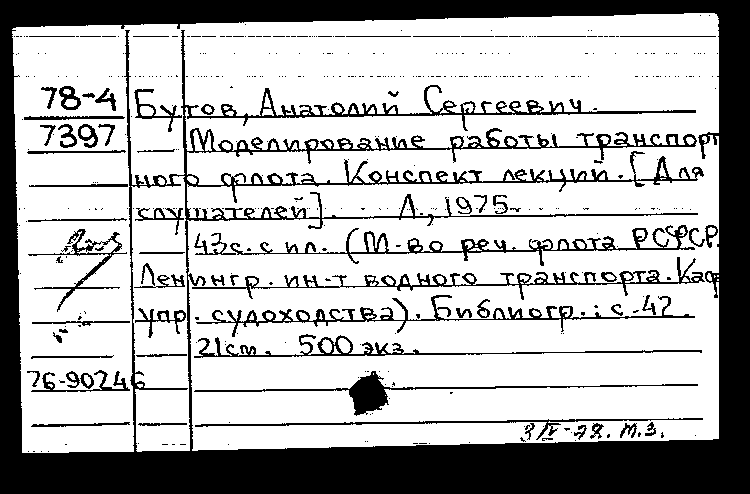 78-4 Бутов, Анатолий Сергеевич.
7397 Моделирование работы транспорт
ного флота. Конспект лекций. [Для
слушателей]. Л., 1975.
43с. с ил. (М-во реч. флота РСФСР.
Ленингр. ин-т водного транспорта. Каф
упр. судоходства). Библиогр.: с. 42.
21см. 500 экз.
76-90246
3/IV-78. М.З.